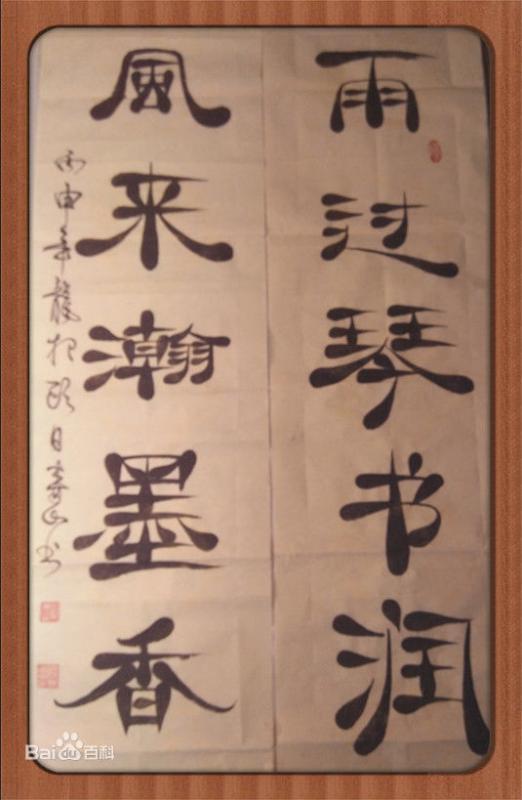 雨过琴书润
風来瀚墨香
丙申年龍抬頭日寿山书
Bai du 百科